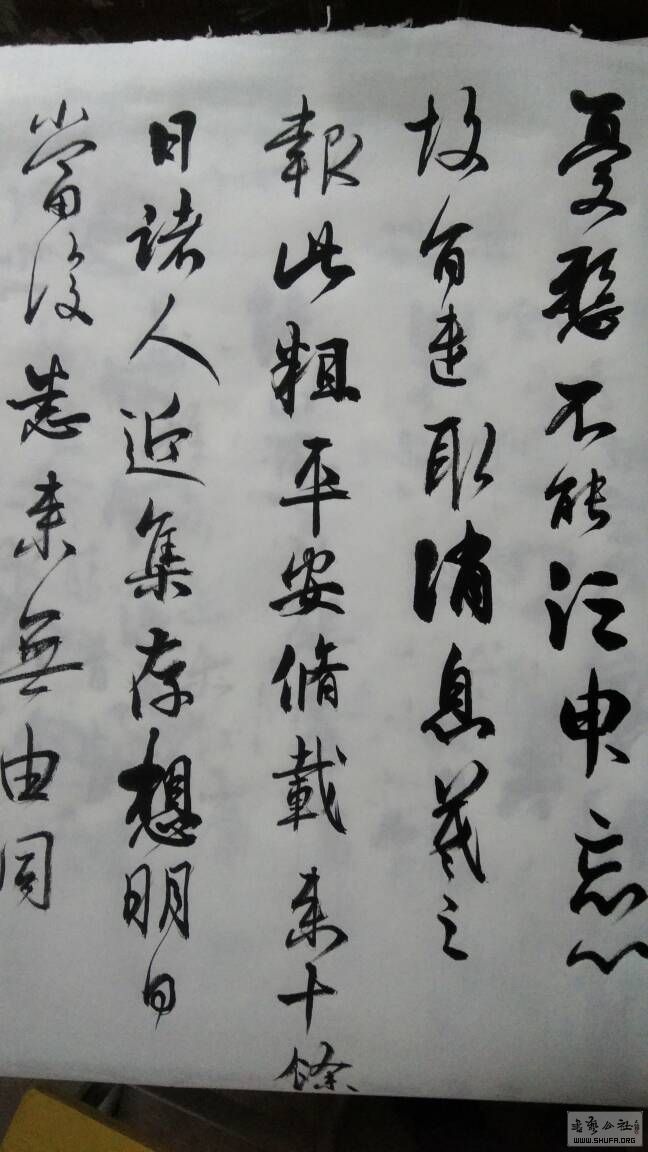 憂懸不能須臾忘心
故旨遣取消息羲之
報此粗平安脩載来十餘
日諸人近集存想明日
當復悉来無由同
書藝公社
WWW.SHUFA.ORG